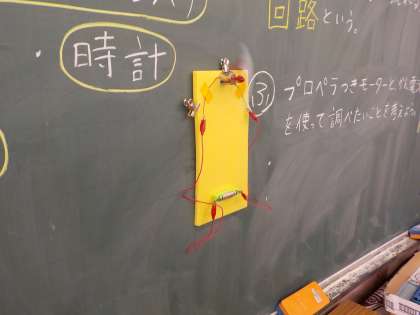 回路という。
時計
ふ) プロペラつきモーターと、
を使って調べたいことを考えよう。